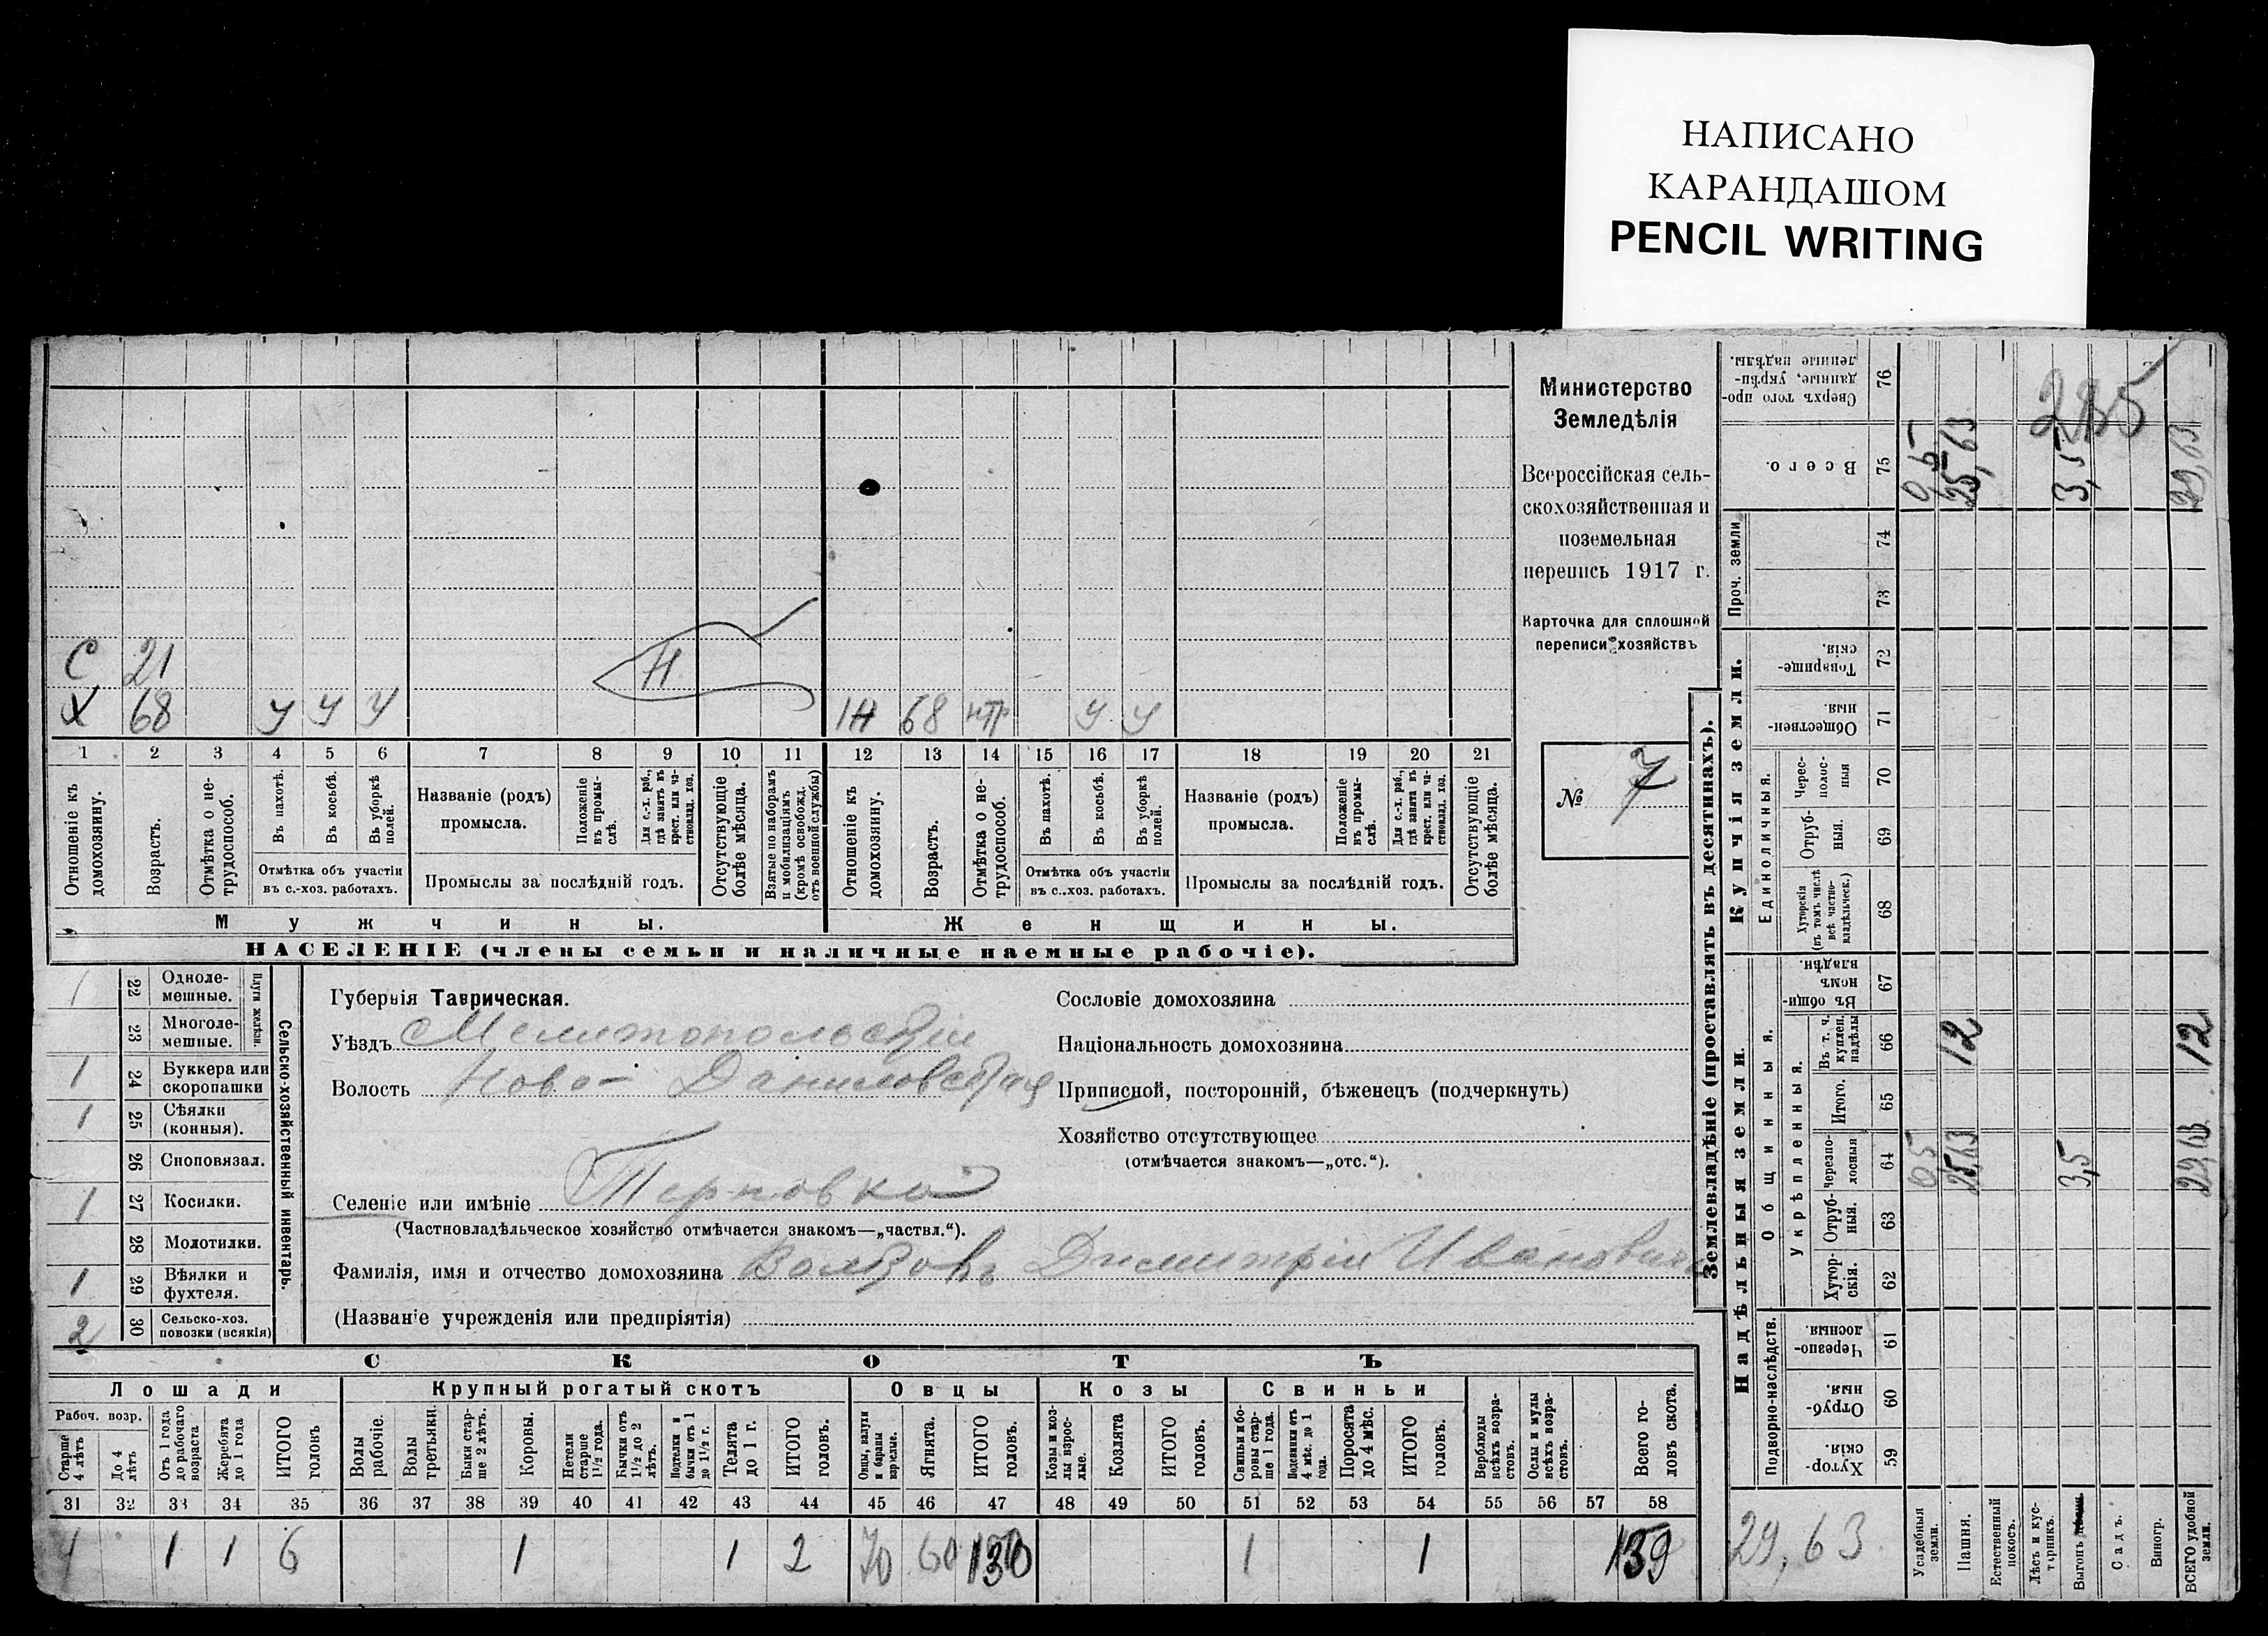 НАПИСАНО
КАРАНДАШОМ
PENCIL WRITING
С 21 Н
Х 68 У У У 1Н 68 нтр У У
1 2 3 4 5 6 7 8 9 10 11 12 13 14 15 16 17 18 19 20 21
Отношеніе къ домохозяину.
Возрастъ.
Отмѣтка о не-трудоспособ.
Въ пахотѣ.
Въ косьбѣ.
Въ уборкѣ полей.
Отмѣтка объ участіи
въ с.-хоз. работахъ.
Названіе (родъ)
промысла.
Положеніе въ промы-слѣ.
Для с.-х. раб., гдѣ занятъ въ крест. или ча-стновлад. хоз.
Промыслы за послѣдній годъ.
Отсутствующіе болѣе мѣсяца.
Взятые по наборамъ и мобилизаціямъ (кромѣ освобожд. отъ военной службы)
Отношеніе къ домохозяину.
Возрастъ.
Отмѣтка о не-трудоспособ.
Въ пахотѣ.
Въ косьбѣ.
Въ уборкѣ полей.
Отмѣтка объ участіи
въ с.-хоз. работахъ.
Названіе (родъ)
промысла.
Положеніе въ промы-слѣ.
Для с.-х. раб., гдѣ занята въ крест. или ча-стновлад. хоз.
Промыслы за послѣдній годъ.
Отсутствующіе болѣе мѣсяца.
Мужчины. Женщины.
НАСЕЛЕНІЕ (члены семьи и наличные наемные рабочіе).
Министерство
Земледѣлія
Всероссійская сель-
скохозяйственная и
поземельная
перепись 1917 г.
Карточка для сплошной
переписи хозяйствъ
№ 7
Сельско-хозяйственный инвентарь.
Плуги желѣзн.
1 22 Одноле-
мешные.
23 Многоле-
мешные.
1 24 Буккера или
скоропашки
1 25 Сѣялки
(конныя).
26 Сноповязал.
1 27 Косилки.
28 Молотилки.
1 29 Вѣялки и
фухтеля.
2 30 Сельско-хоз.
повозки (всякія)
Губернія Таврическая.
Уѣздъ Мелитопольскій
Волость Ново-Даниловская
Селеніе или имѣніе Терновка
(Частновладѣльческое хозяйство отмѣчается знакомъ—„частвл.“).
Фамилія, имя и отчество домохозяина Волковъ Димитрій Ивановичъ
(Названіе учрежденія или предпріятія)
Сословіе домохозяина
Національность домохозяина
Приписной, посторонній, бѣженецъ (подчеркнуть)
Хозяйство отсутствующее
(отмѣчается знакомъ—„отс.“).
СКОТЪ
Лошади Крупный рогатый скотъ Овцы Козы Свиньи
Рабоч. возр.
Старше 4 лѣтъ
До 4 лѣтъ
Отъ 1 года до рабочаго возраста
Жеребята до 1 года
ИТОГО головъ
Волы рабочіе.
Волы третьяки.
Быки стар-ше 2 лѣтъ.
Коровы.
Нетели старше 1½ года.
Бычки отъ 1½ до 2 лѣтъ.
Подтелки и бычки отъ 1 до 1½ г.
Телята до 1 г.
ИТОГО головъ.
Овцы, валухи и бараны взрослые.
Ягнята.
ИТОГО головъ.
Козы и коз-лы взрос-лые.
Козлята
ИТОГО головъ.
Свиньи и бо-ровы стар-ше 1 года.
Подсвинки отъ 4 мѣс. до 1 года.
Поросята до 4 мѣс.
ИТОГО головъ.
Верблюды всѣхъ возра-стовъ.
Ослы и мулы всѣхъ возра-стовъ.
Всего го-ловъ скота.
31 32 33 34 35 36 37 38 39 40 41 42 43 44 45 46 47 48 49 50 51 52 53 54 55 56 57 58
4 1 1 6 1 1 2 70 60 130 1 1 139
Землевладѣніе (проставлять въ десятинахъ).
Надѣльныя земли.
Купчія земли.
Проч. земли
Подворно-наслѣдств.
Общинныя.
Укрѣпленныя.
Единоличныя.
Сверхъ того про-данные, укрѣп-ленные надѣлы. 76
Всего. 75
74
73
Товарище-скія. 72
Обществен-ныя. 71
Черес-полос-ныя 70
Отруб-ныя. 69
Хуторскія (въ томъ числѣ всѣ частно-владѣльческ.) 68
Въ общин-номъ владѣн. 67
Въ т. ч. куплен. надѣлы 66
Итого. 65
Черезпо-лосныя 64
Отруб-ныя. 63
Хутор-скія. 62
Черезпо-лосныя. 61
Отруб-ныя. 60
Хутор-скія. 59
Усадебныя земли.
Пашня.
Естественный покосъ.
Лѣсъ и кус-тарникъ.
Выгонъ
Садъ.
Виногр.
ВСЕГО удобной земли.
0,5 25,63 3,5 29,63
12 12
0,5 25,63 3,5 29,63
29,63